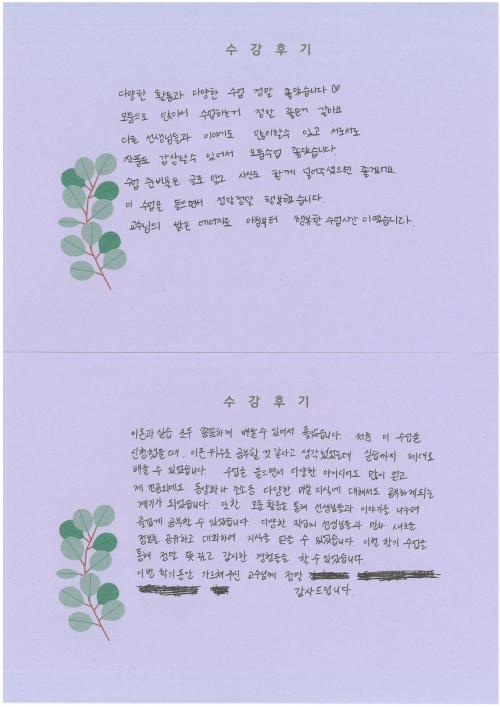 수 강 후 기
다양한 활동과 다양한 수업 정말 좋았습니다 ♡
모둠으로 앉아서 수업하는게 정말 좋은거 같아요
다른 선생님들과 이야기도 많이할수 있고 서로서로
작품도 감상할수 있어서 모둠수업 좋았습니다
수업 준비물은 글로 말고 사진도 함께 넣어주셨으면 좋겠어요
이 수업을 들으면서 정말정말 행복했습니다.
교수님의 밝은 에너지로 아침부터 행복한 수업시간이였습니다.
수 강 후 기
이론과 실습 모두 꼼꼼하게 배울수 있어서 좋았습니다. 처음 이 수업을
신청했을때, 이론위주로 공부할 것 같다고 생각했었는데 실습까지 제대로
배울 수 있었습니다. 수업을 들으면서 다양한 아이디어도 많이 얻고
제 전공외에도 동양화나 한소 등 다양한 미술지식에 대해서도 공부하게되는
계기가 되었습니다. 또한 모둠활동을 통해 선생님들과 이야기를 나누며
즐겁게 공부할 수 있었습니다. 다양한 직업의 선생님들과 만나 새로운
정보를 공유하고 대화하며 지식을 얻을 수 있었습니다. 이번 학기 수업을
통해 정말 뜻깊고 감사한 경험들을 할 수 있었습니다.
이번 학기동안 가르쳐주신 교수님께 정말
감사드립니다.